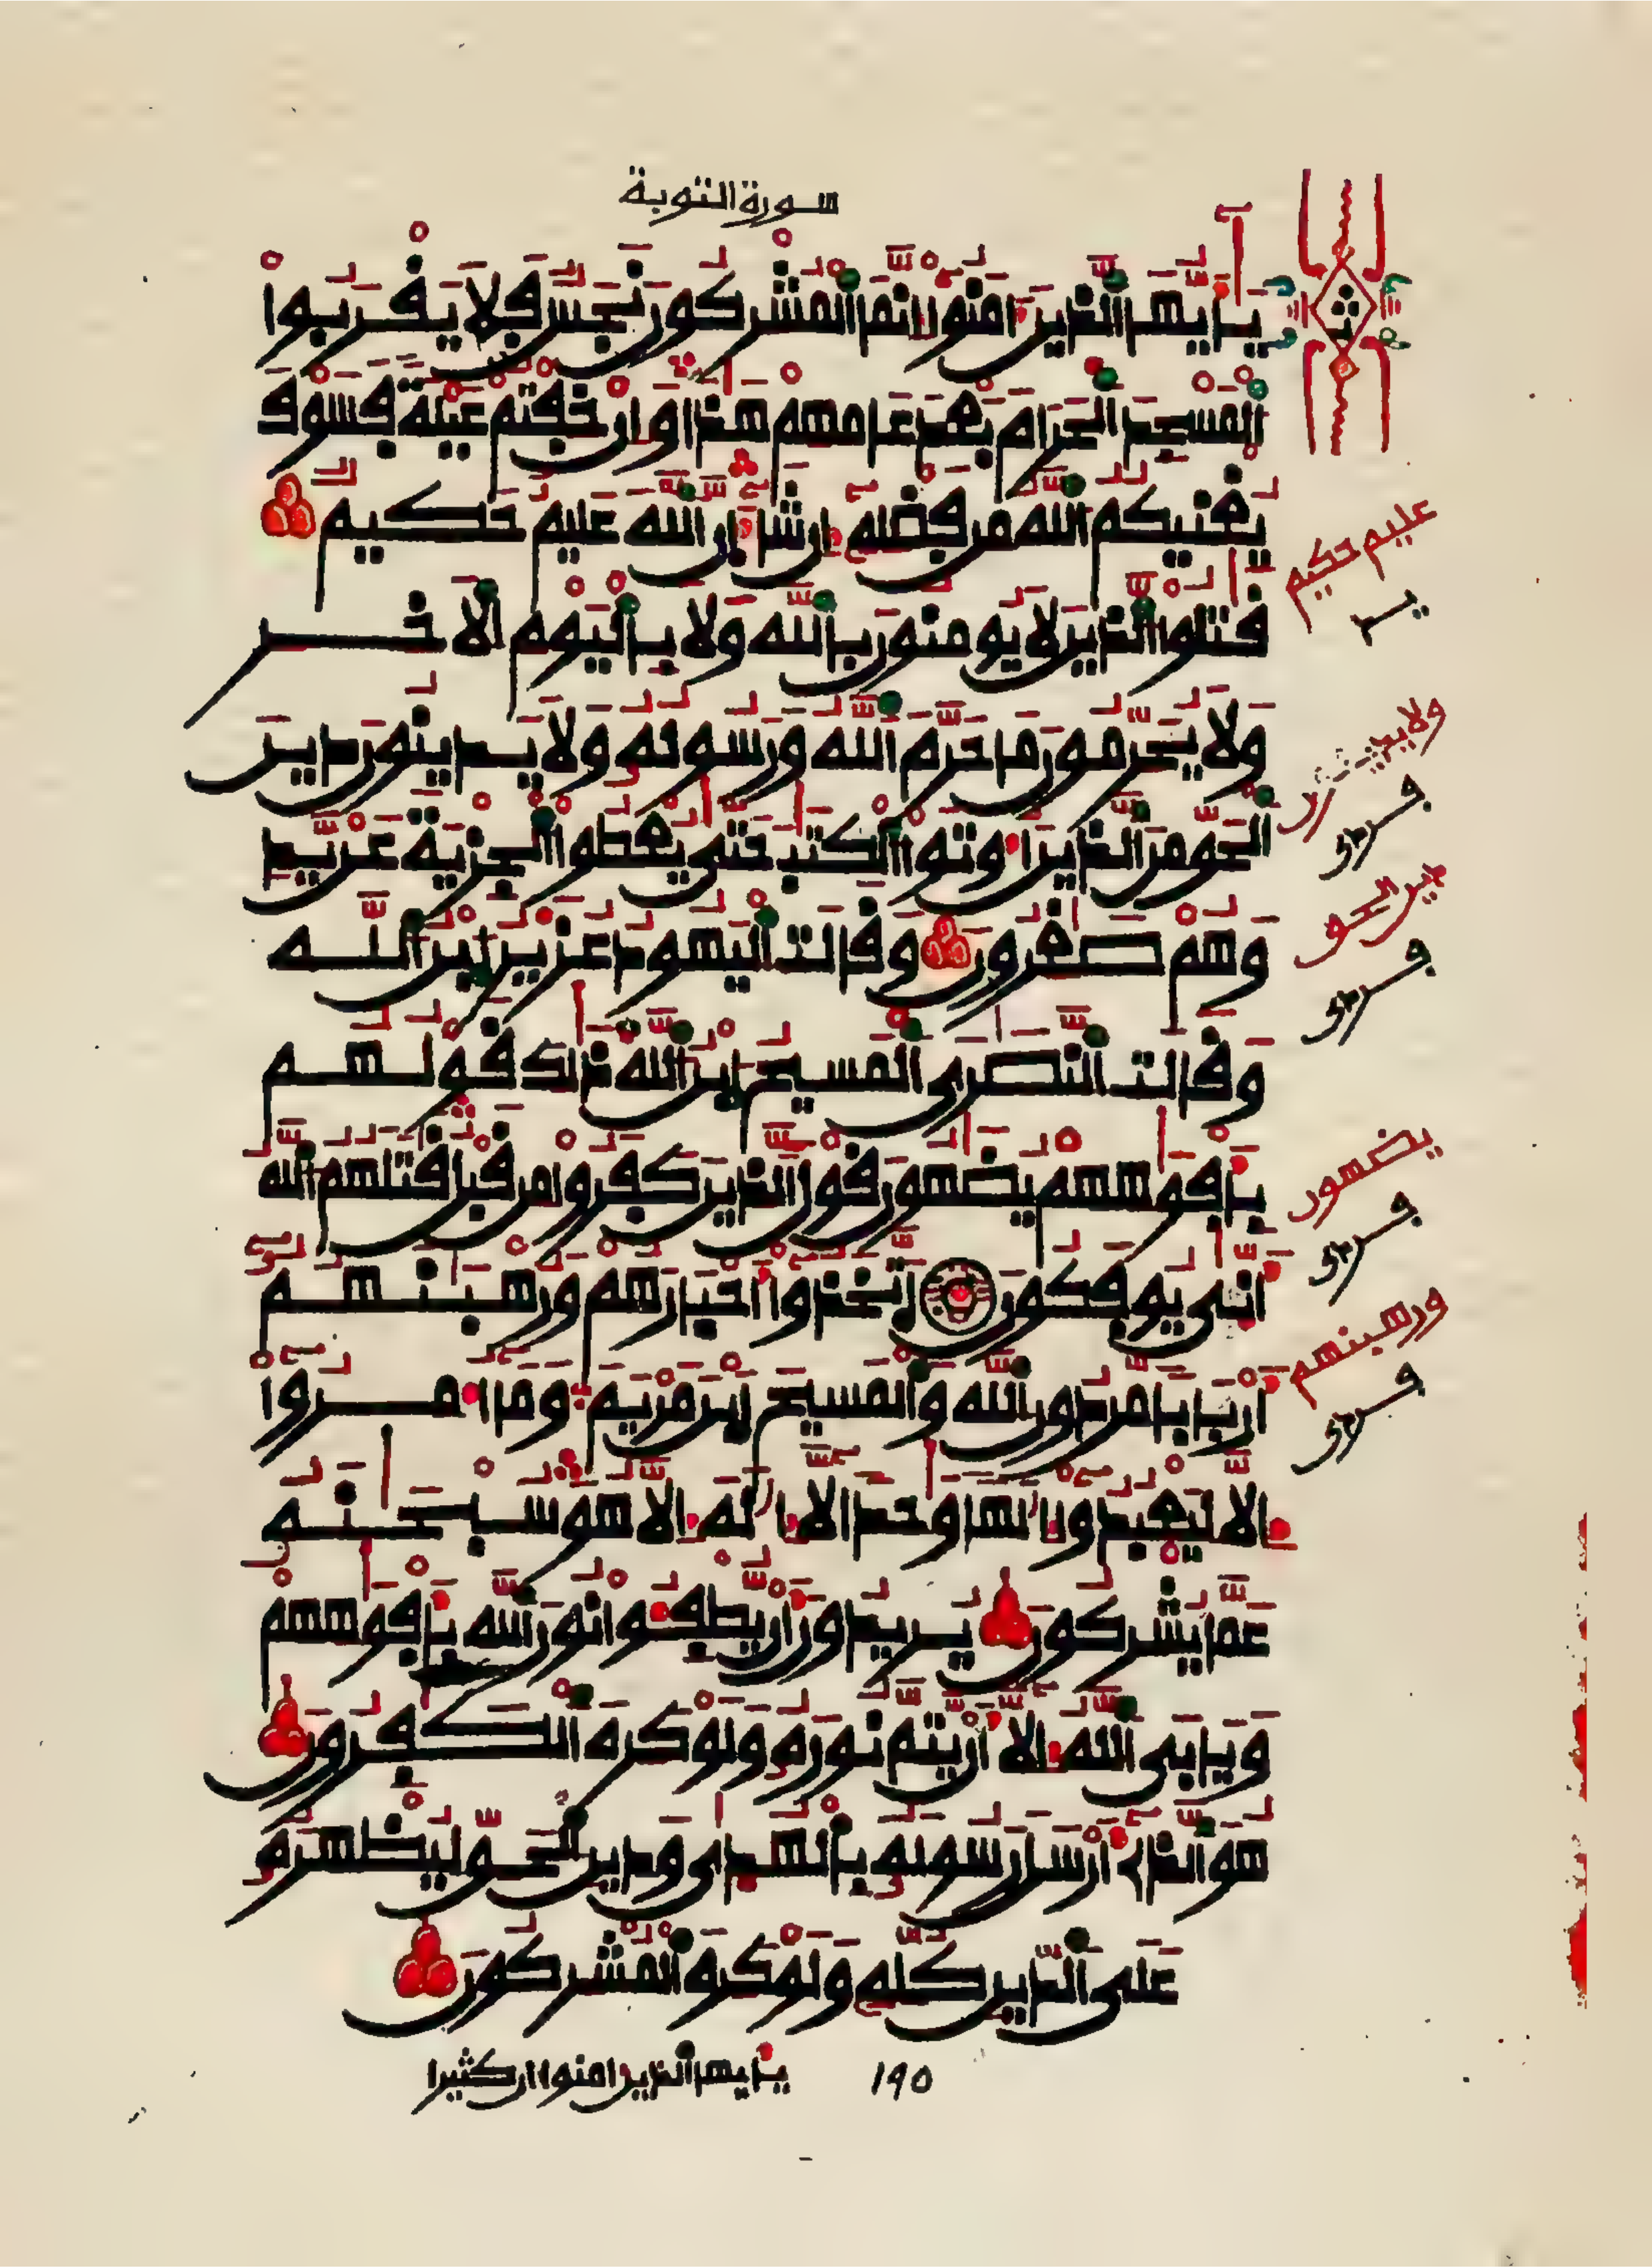 سورة التوبة
يَٰأَيُّهَا الَّذِينَ ءَامَنُوا إِنَّمَا الْمُشْرِكُونَ نَجَسٌ فَلَا يَقْرَبُوا
الْمَسْجِدَ الْحَرَامَ بَعْدَ عَامِهِمْ هَٰذَا وَإِنْ خِفْتُمْ عَيْلَةً فَسَوْفَ
يُغْنِيكُمُ اللَّهُ مِن فَضْلِهِ إِن شَاءَ إِنَّ اللَّهَ عَلِيمٌ حَكِيمٌ
قَٰتِلُوا الَّذِينَ لَا يُومِنُونَ بِاللَّهِ وَلَا بِالْيَوْمِ الْأَخِرِ
وَلَا يُحَرِّمُونَ مَا حَرَّمَ اللَّهُ وَرَسُولُهُ وَلَا يَدِينُونَ دِينَ
الْحَقِّ مِنَ الَّذِينَ أُوتُوا الْكِتَٰبَ حَتَّىٰ يُعْطُوا الْجِزْيَةَ عَن يَدٍ
وَهُمْ صَٰغِرُونَ وَقَالَتِ الْيَهُودُ عُزَيْرُ ابْنُ اللَّهِ
وَقَالَتِ النَّصَٰرَى الْمَسِيحُ ابْنُ اللَّهِ ذَٰلِكَ قَوْلُهُم
بِأَفْوَٰهِهِمْ يُضَٰهُونَ قَوْلَ الَّذِينَ كَفَرُوا مِن قَبْلُ قَٰتَلَهُمُ اللَّهُ
أَنَّىٰ يُوفَكُونَ اتَّخَذُوا أَحْبَارَهُمْ وَرُهْبَٰنَهُمْ
أَرْبَابًا مِّن دُونِ اللَّهِ وَالْمَسِيحَ ابْنَ مَرْيَمَ وَمَا أُمِرُوا
إِلَّا لِيَعْبُدُوا إِلَٰهًا وَٰحِدًا لَّا إِلَٰهَ إِلَّا هُوَ سُبْحَٰنَهُ
عَمَّا يُشْرِكُونَ يُرِيدُونَ أَن يُطْفِئُوا نُورَ اللَّهِ بِأَفْوَٰهِهِمْ
وَيَأْبَى اللَّهُ إِلَّا أَن يُتِمَّ نُورَهُ وَلَوْ كَرِهَ الْكَٰفِرُونَ
هُوَ الَّذِي أَرْسَلَ رَسُولَهُ بِالْهُدَىٰ وَدِينِ الْحَقِّ لِيُظْهِرَهُ
عَلَى الدِّينِ كُلِّهِ وَلَوْ كَرِهَ الْمُشْرِكُونَ
يَٰأيها الذين ءامنوا إن كثيرا
١٩٥
عليم حكيم
دين الحق
يضهون
ورهبنهم